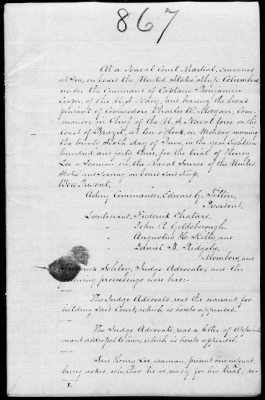 867
At a Naval Court Martial, convened
at Sea, on board the United States' Ship Columbus
under the Command of Captain Benjamin
Cooper, of the U.S. Navy, and bearing the broad
pendant of Commodore Charles W. Morgan, Com-
mander in Chief of the U.S. Naval force on the
Coast of Brazil, at ten o'clock on
the day of June, in the year Eighteen
hundred and forty, for the trial of Henry
Lee, a Seaman in the Naval Service of the United
States and serving on board said Ship.
Were Present,
Acting Commander, Edward C.
President,
Lieutenant, Frederick
" John R. Goldsborough,
" Augustus H. Kelly and
" Daniel B. Ridgely,
Members, and
Schley, Judge Advocate, and the
following proceedings were had:
The Judge Advocate read the warrant for
holding said Court, which is hereto appended.
The Judge Advocate read a letter of appoint-
ment addressed to him, which is hereto appended.
Henry Lee, seaman, present in court
being asked whether he is ready for his trial,